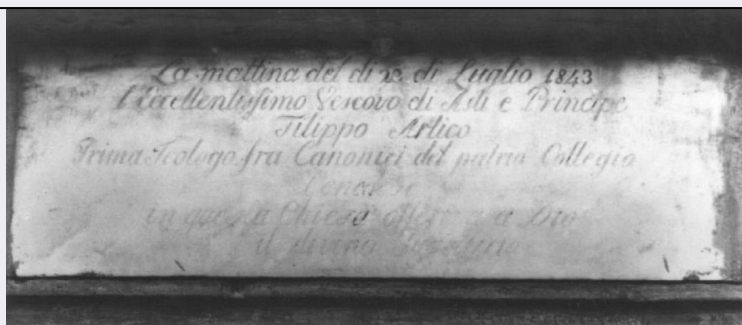 La mattina del di 23 di Luglio 1843
l'Eccellentissimo Vescovo di Asti e Principe
Filippo Artico
Prima Teologo fra Canonici del patrio Collegio
in questa Chiesa a Dio
il divino